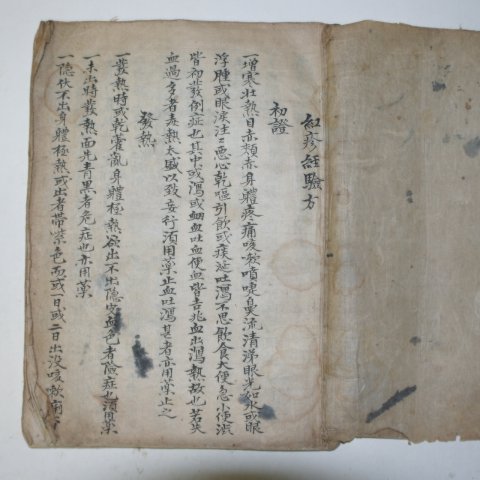 紅疹經驗方
初證
一增寒壯熱目赤頰赤身體疼痛咳嗽噴嚏鼻流清涕眼光如水或眼
浮腫或眼淚注々惡心乾嘔引飮或痰涎吐瀉不思飮食大便急小便澁
皆初發例症也其中或瀉或衄血吐血便血皆吉兆血出瀉熱故也若失
血過多者表熱太盛以致妄行須用藥止血吐瀉甚者亦用藥止之
發熱
一發熱時或乾霍亂身體極熱欲出不出隱皮血色者險症也須用藥
一未出時發熱面先靑黑者危症也亦用藥
一隱伏不出身體極熱或出者帶紫色而或一日或二日出沒咳嗽